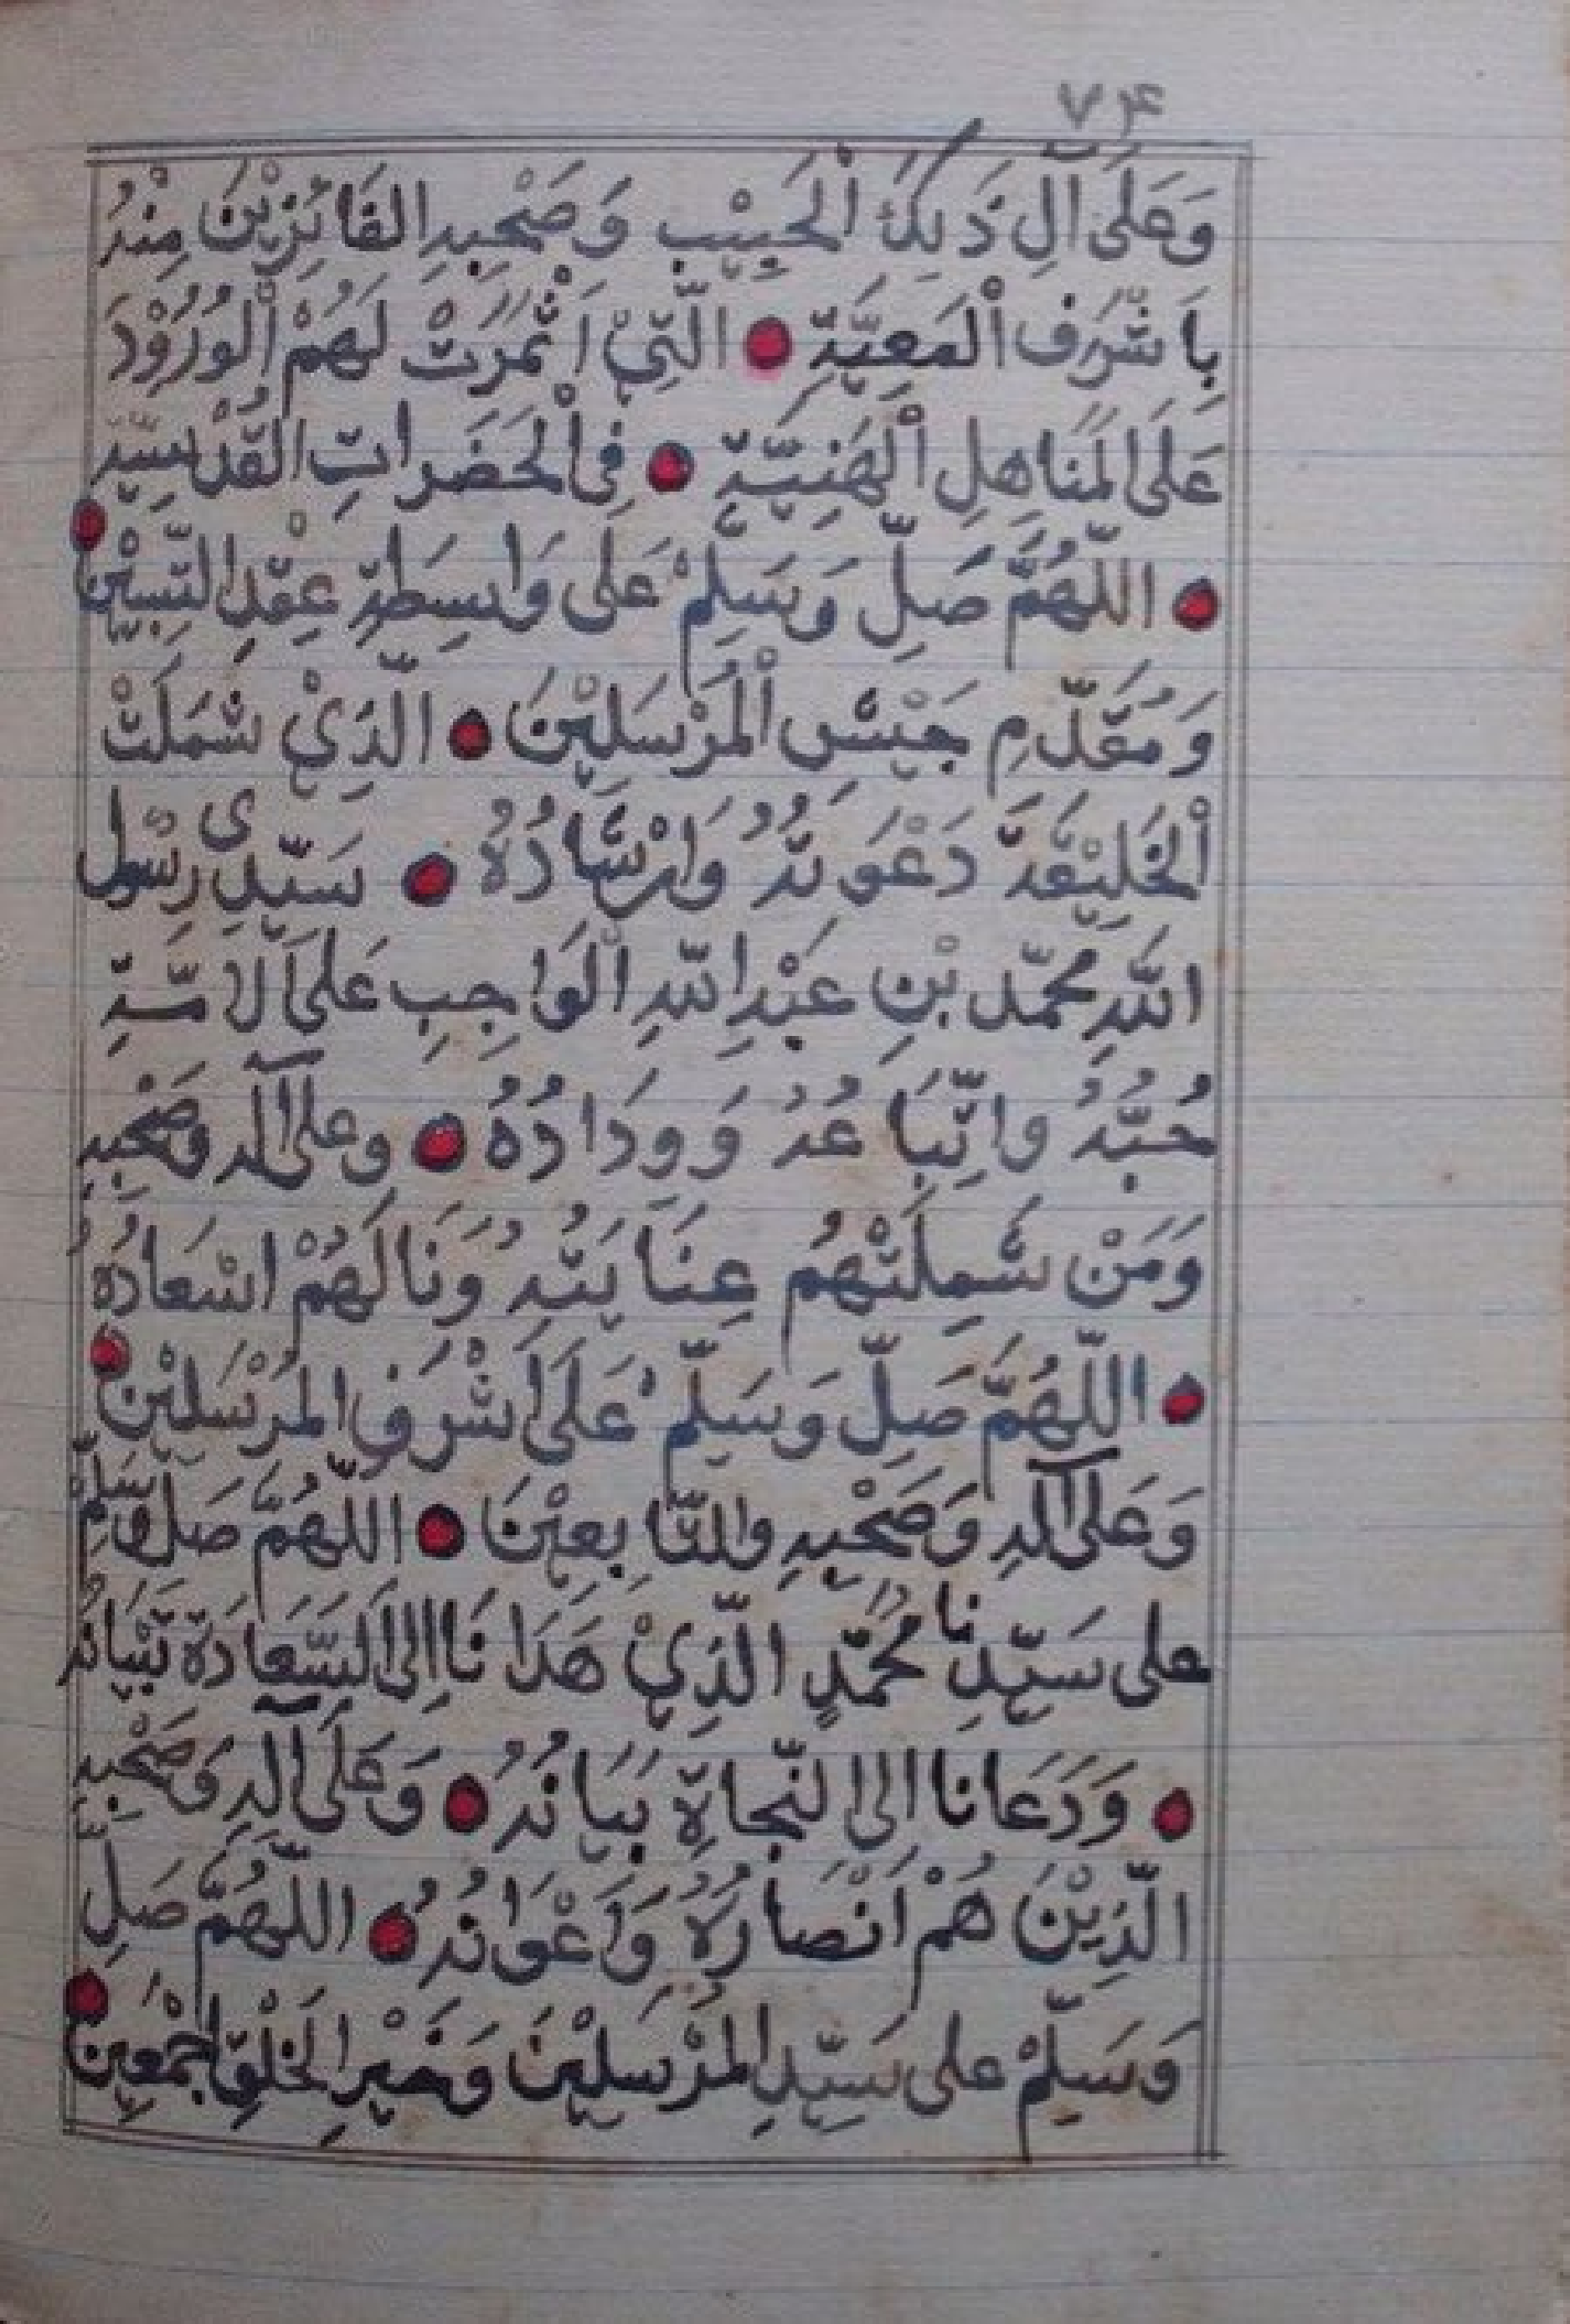 ٧٤
وَعَلَى آلِ ذَلِكَ الْحَبِيْبِ وَصَحْبِهِ الفَائِزِيْنَ مِنْهُ
بِاَشْرَفِ الْمَعِيَّةِ • الَّتِيْ اَثْمَرَتْ لَهُمْ الْوُرُوْدَ
عَلَى الْمَنَاهِلِ الْهَنِيَّةِ • فِي الْحَضَرَاتِ القُدْسِيَّةِ •
• اللّهُمَّ صَلِّ وَسَلِّمْ عَلَى وَاسِطَةِ عِقْدِ النَّبِيِّيْنَ
وَمُقَدَّمِ جَيْشِ الْمُرْسَلِيْنَ • الَّذِيْ شَمَلَتْ
الْخَلِيْقَةَ دَعْوَتُهُ وَاِرْشَادُهُ • سَيِّدِى رَسُوْلِ
اللّهِ مُحَمَّد بْنِ عَبْدِ اللّهِ الْوَاجِبِ عَلَى الْاُمَّةِ
حُبُّهُ وَاتِّبَاعُهُ وَوِدَادُهُ • وعلى آله وصَحْبِهِ
وَمَنْ شَمِلَتْهُمْ عِنَايَتُهُ وَنَالَهُمْ اسْعَادُهُ •
• اللّهُمَّ صَلِّ وَسَلِّمْ عَلَى اَشْرَفِ الْمُرْسَلِيْنَ
وَعَلَى آلِهِ وَصَحْبِهِ وَالتَّابِعِيْنَ • اللّهُمَّ صَلِّ وَسَلِّمْ
على سَيِّدِنَا مُحَمَّدٍ الَّذِيْ هَدَانَا اِلَى السَّعَادَةِ تِبْيَانُهُ
• وَدَعَانَا اِلَى النَّجَاةِ بَيَانُهُ • وَعَلَى آلِهِ وَصَحْبِهِ
الَّذِيْنَ هُمْ اَنْصَارُهُ وَاَعْوَانُهُ • اللّهُمَّ صَلِّ
وَسَلِّمْ على سَيِّدِ الْمُرْسَلِيْنَ وَخَيْرِ الْخَلْقِ اَجْمَعِيْنَ •